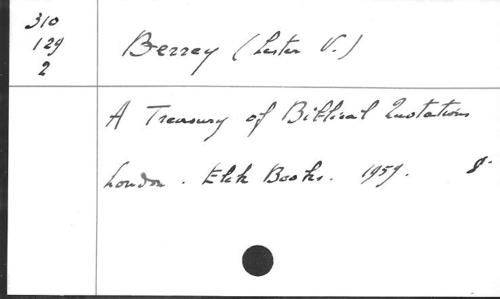 310
129
2
Berrey (Lester V.)
A Treasury of Biblical Quotations
London. Elek Books. 1959. 8°